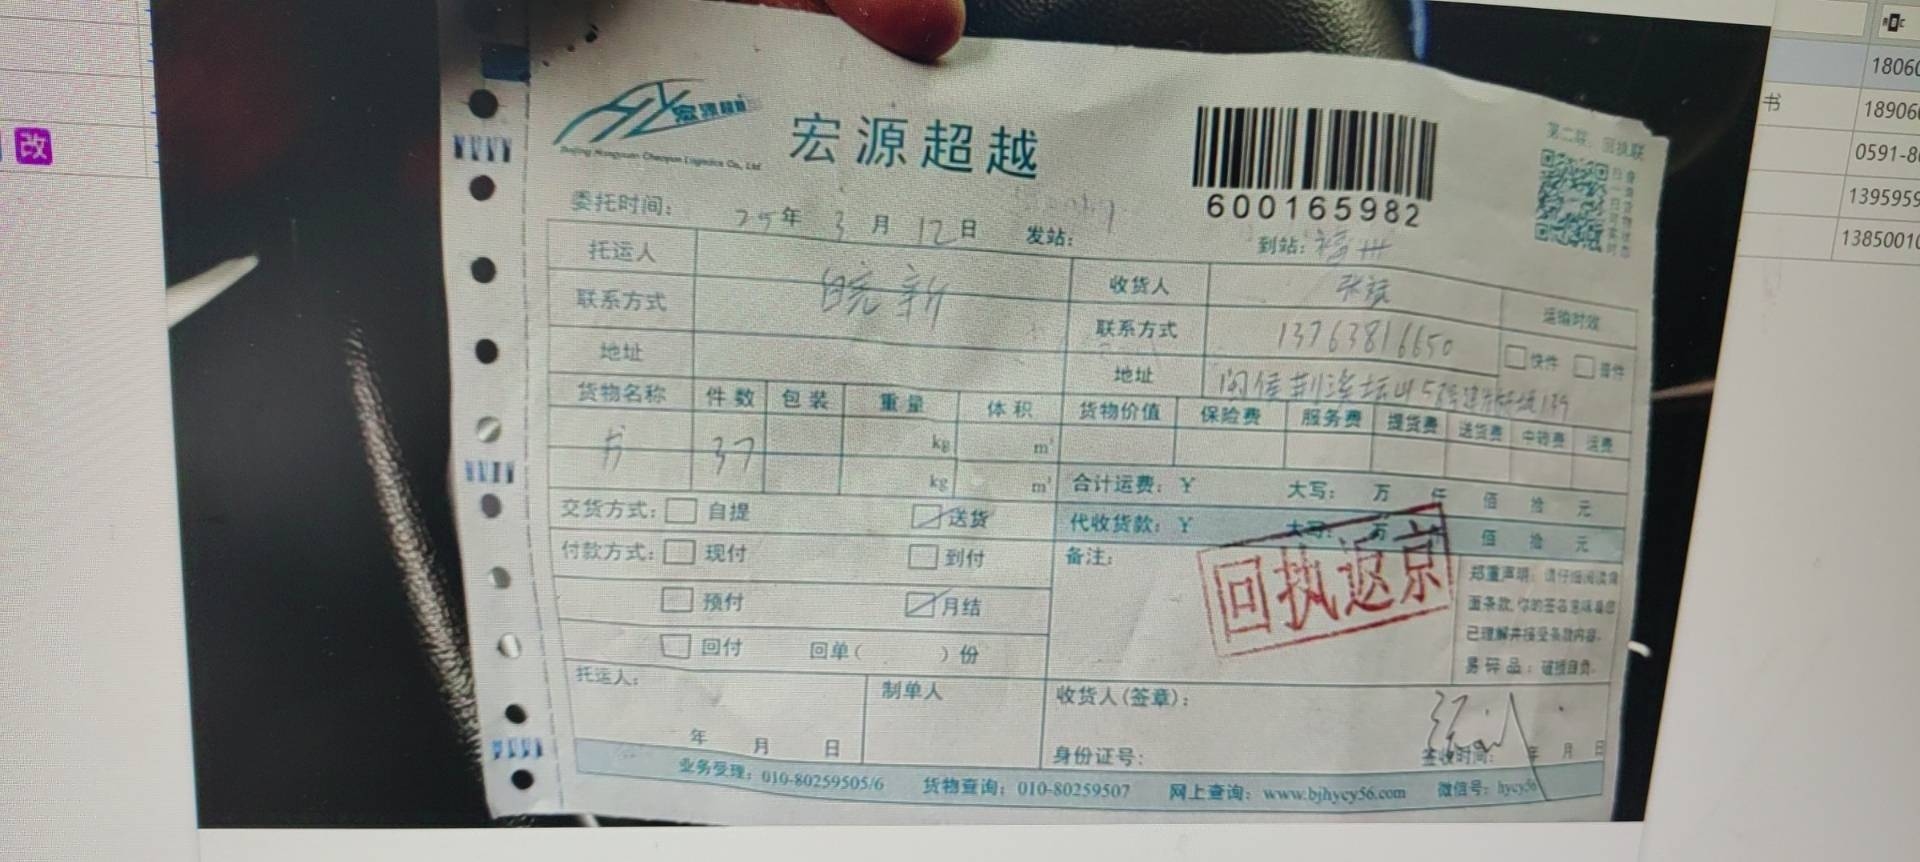 改
书
18060
18906
0591-8
1395959
13850010
宏源超越
Beijing Hongyuan Chaoyue Logistics Co., Ltd
宏源超越
600165982
第二联：回执联
委托时间： 25年 3月 12日 发站： 到站：福州
托运人 收货人
联系方式 晓新 联系方式 13763816650
运输时效
快件 普件
地址 地址 闽侯荆溪
货物名称 件数 包装 重量 体积 货物价值 保险费 服务费 提货费 送货费 中转费 运费
书 37 kg m³
kg m³ 合计运费：￥ 大写： 万 仟 佰 拾 元
交货方式： 自提 送货 代收货款：￥ 大写： 万 仟 佰 拾 元
付款方式： 现付 到付 备注：
预付 月结
回付 回单（ ）份
回执返京
郑重声明：请仔细阅读背
面条款，你的签名意味着您
已理解并接受条款内容。
易碎品：破损自负。
托运人： 制单人 收货人（签章）：
年 月 日 身份证号： 签收时间： 年 月 日
业务受理：010-80259505/6 货物查询：010-80259507 网上查询：www.bjhycy56.com 微信号：hycy56